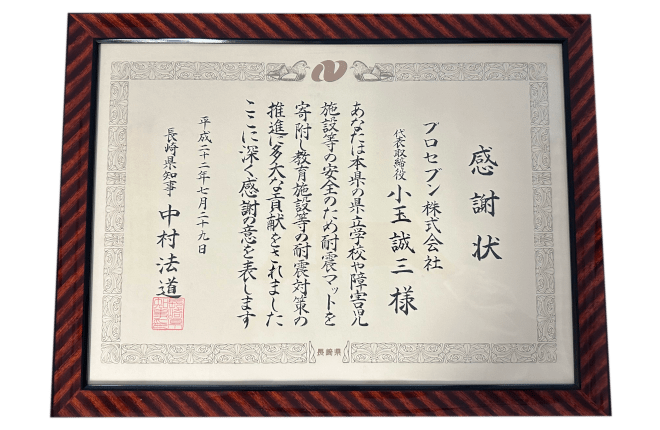 感謝状
プロセブン株式会社
代表取締役 小玉誠三様
あなたは本県の県立学校や障害児
施設等の安全のため耐震マットを
寄附し教育施設等の耐震対策の
推進に多大な貢献をされました
ここに深く感謝の意を表します
平成二十二年七月二十九日
長崎県知事 中村法道
長崎県